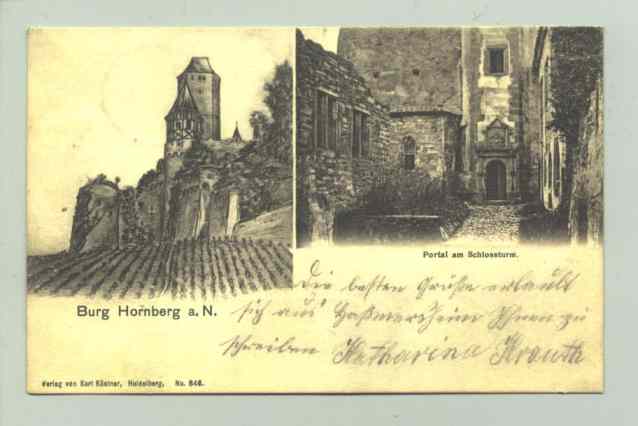 Portal am Schlossturm.
Burg Hornberg a. N.
Die besten Grüße erlaubt
sich aus Haßmersheim Ihnen zu
schreiben Katharina Krauth
Verlag von Karl Kästner, Heidelberg, No. 846.